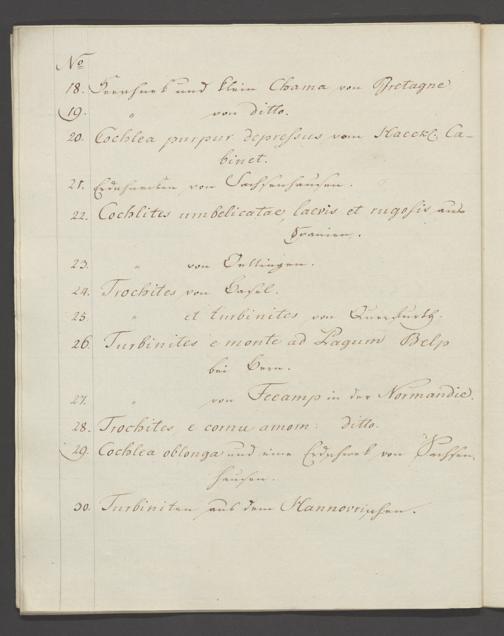 No
18. und klein Chama von Bretagne
19. " von ditto.
20. Cochlea purpur depressus vom Haeckl. Ca-
binet.
21. von Sachsenhausen.
22. Cochlites umbelicatae, laevis et rugosis aus
23. " von Oettingen.
24. Trochites von Basel.
25 " et turbinites von Querfurth.
26. Turbinites e monte ad Pagum Belp
bei Bern.
27. " von Fecamp in der Normandie.
28. Trochites e cornu amom: ditto.
29. Cochlea oblonga und eine von Sachsen
hausen.
30. Turbiniten aus dem Hannovrischen.